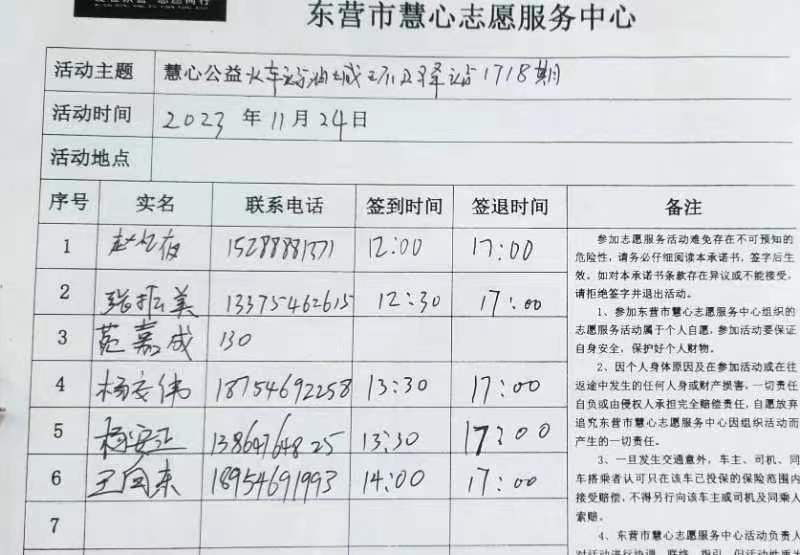 东营市慧心志愿服务中心
活动主题 慧心公益火车站油城 驿站1718期
活动时间 2023年11月24日
活动地点
序号 实名 联系电话 签到时间 签退时间 备注
1 15288881371 12:00 17:00
2 张振美 13375462615 12:30 17:00
3 范嘉成 130
4 杨安伟 18754692258 13:30 17:00
5 杨安江 13864764825 13:30 17:00
6 王向东 18954691993 14:00 17:00
7
参加志愿服务活动难免存在不可预知的
危险性，请务必仔细阅读本承诺书，签字后生
效。如对本承诺书条款存在异议或不能接受，
请拒绝签字并退出活动。
1、参加东营市慧心志愿服务中心组织的
志愿服务活动属于个人自愿，参加活动要保证
自身安全，保护好个人财物。
2、因个人身体原因及在参加活动或在往
返途中发生的任何人身或财产损害，一切责任
自负或由侵权人承担完全赔偿责任，自愿放弃
追究东营市慧心志愿服务中心因组织活动而
产生的一切责任。
3、一旦发生交通意外，车主、司机、同
车搭乘者认可只在该车已投保的保险范围内
接受赔偿，不得另行向该车主或司机及同乘人
索赔。
4、东营市慧心志愿服务中心活动负责人